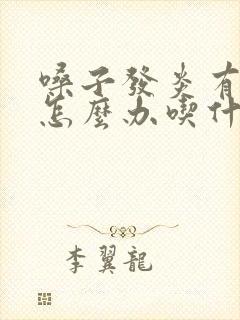 嗓子發炎有
怎麼办喫什
李翼龍